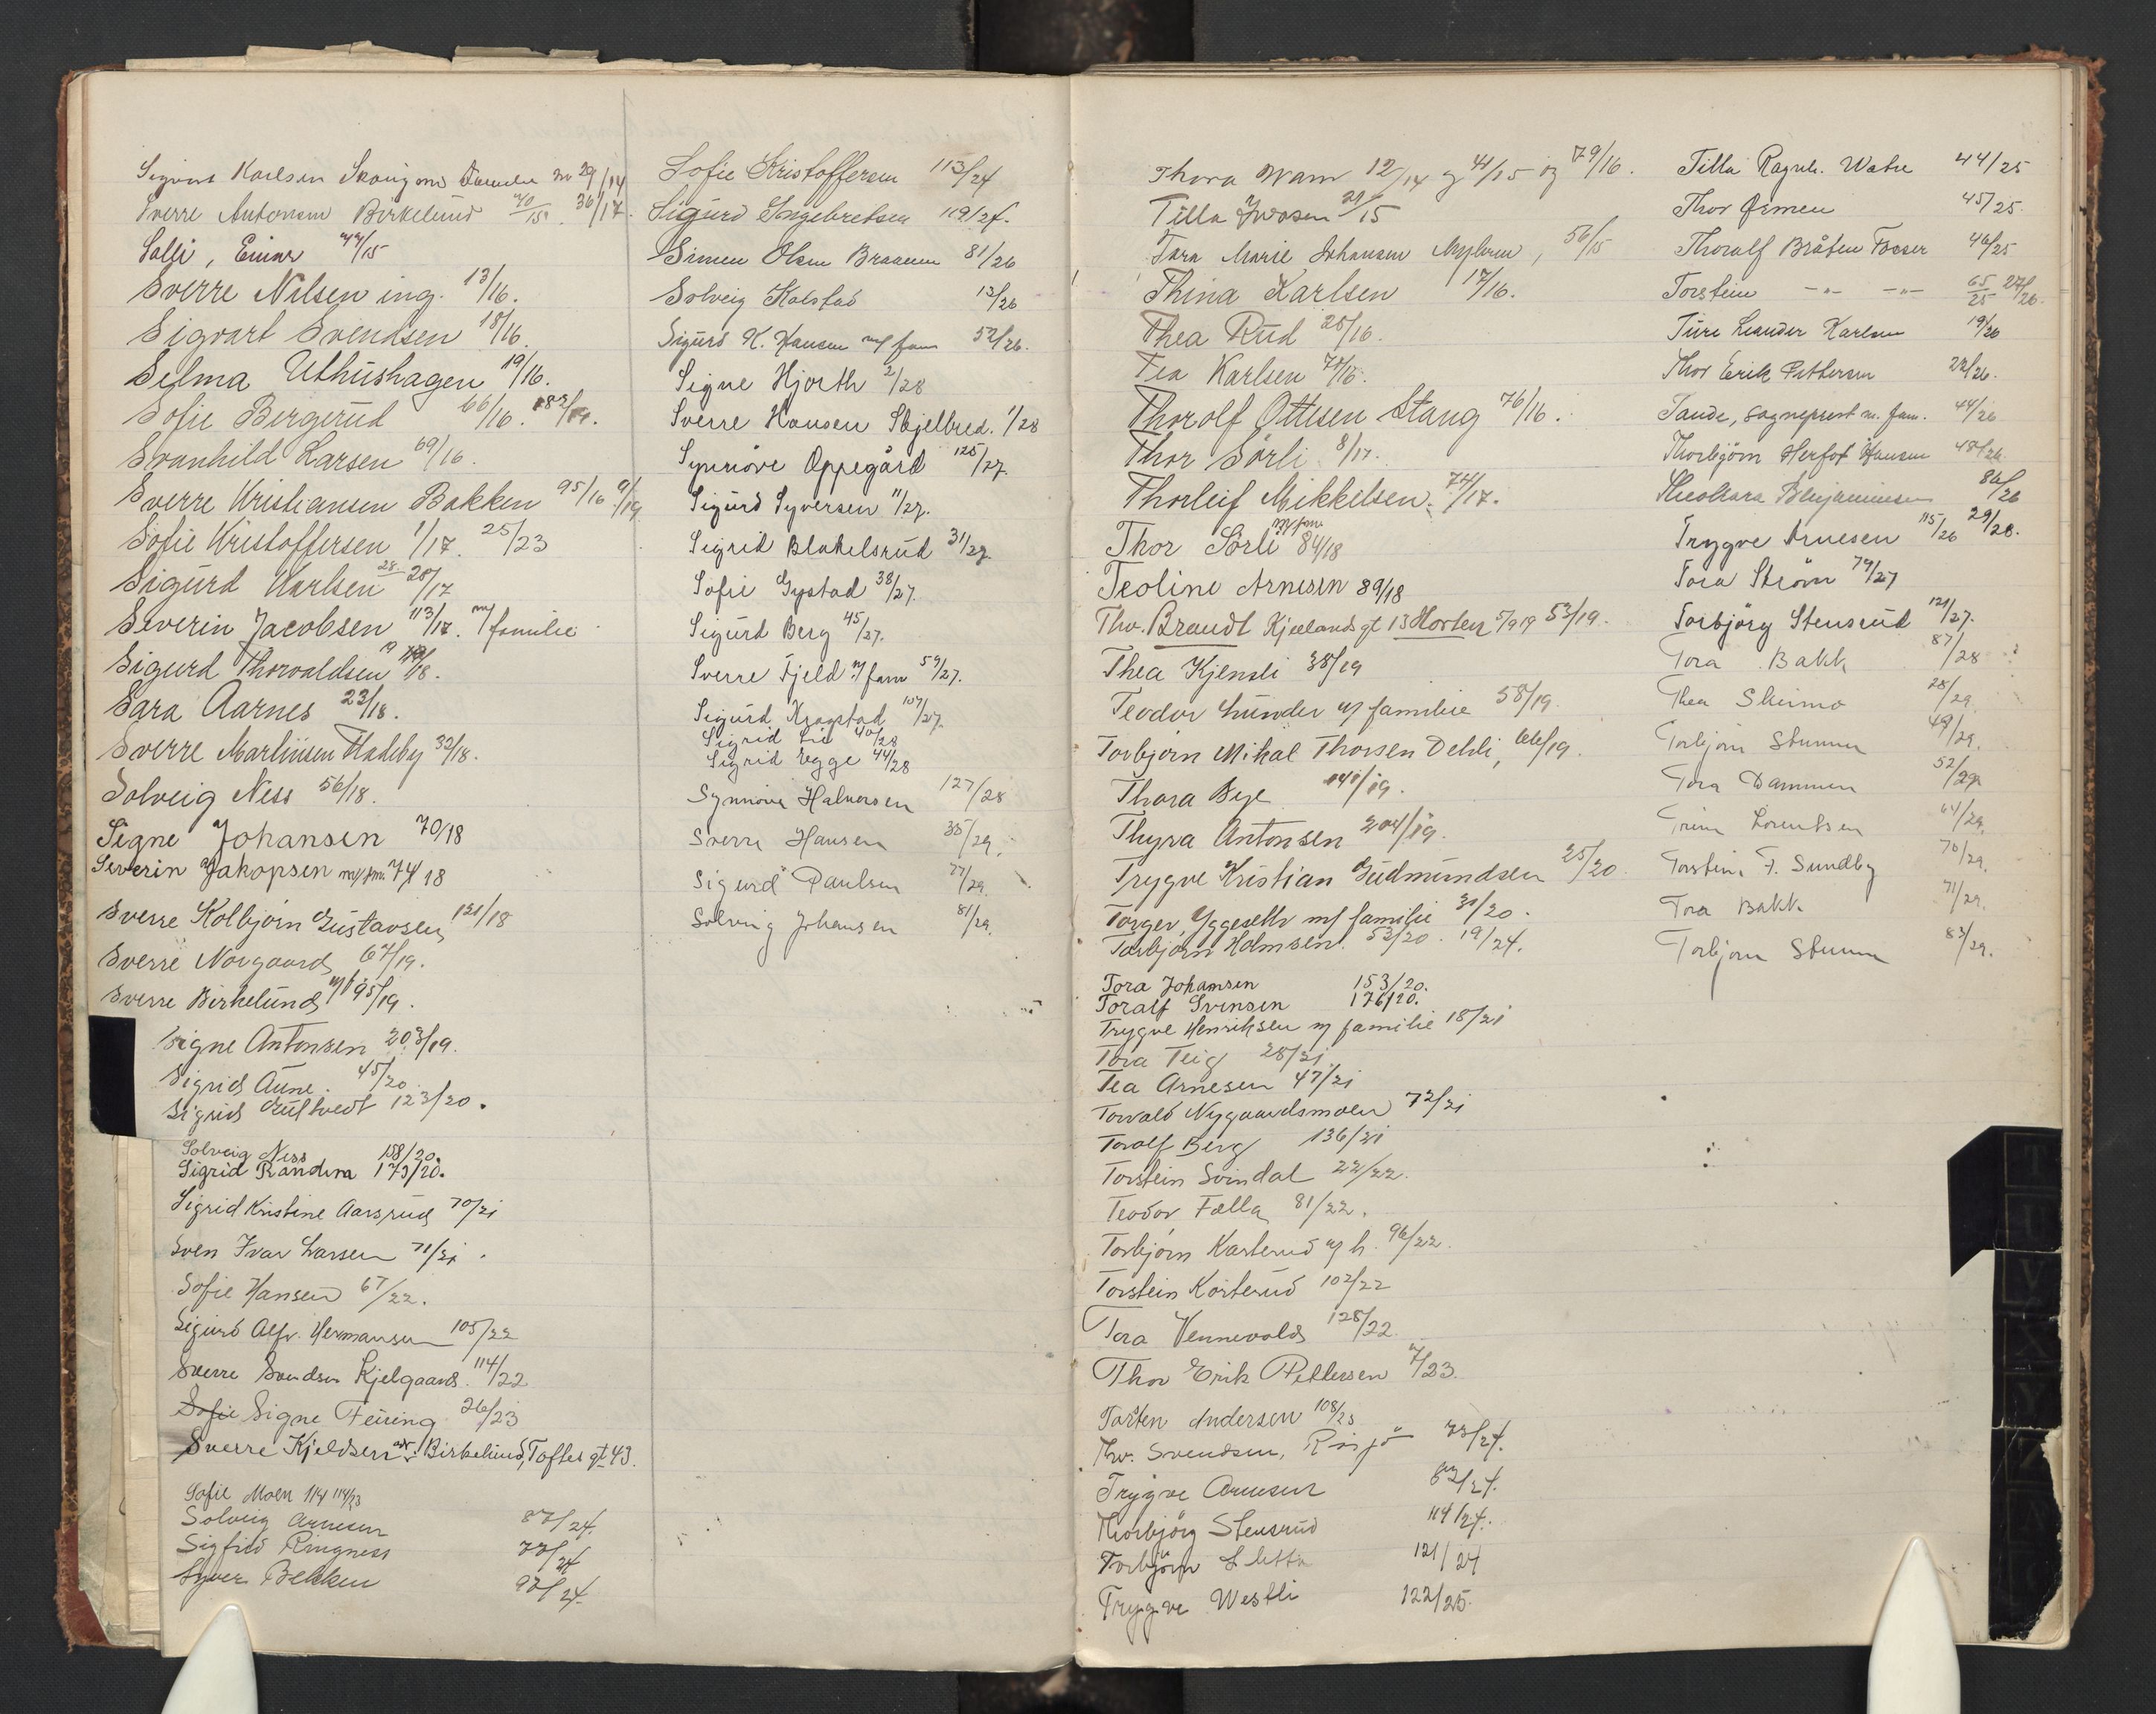 Sverre Antonsen Birkelund 70/15. 36/17.
Solli, Einar 44/15
Sverre Nilsen ing. 13/16.
Sigvart Svendsen 18/16.
Selma Uthushagen 19/16.
Sofie Bergerud 66/16.
Svanhild Larsen 69/16.
Sverre Kristiansen Bakken 95/16
Sofie Kristoffersen 1/17. 25/23
Sigurd Karlsen
Severin Jacobsen 113/17. m/familie
Sigurd Thorvaldsen
Sara Aarnes 23/18.
Sverre Martinsen Hadeby 32/18.
Solveig Ness 56/18.
Signe Johansen 70/18
Severin Jakopsen m/fm. 74/18
Sverre Kolbjørn Gustavsen 121/18
Sverre Norgaard 67/19.
Sverre Birkelund m/f 95/19.
Signe Antonsen 203/19.
Sigrid Aune. 45/20
Sigrid Gultvedt 123/20.
Solveig Ness 158/20.
Sigrid Randina 173/20.
Sigrid Kristine Aarsrud 70/21
Sven Ivar Larsen 71/21.
Sofie Hansen 67/22.
Sigurd Alfr. Hermansen 105/22
Sverre Svendsen Kjelgaard. 114/22
Sofie Signe Feiring 26/23
Sverre Kjeldsen adr. Birkelund, Toftes gt 43.
Sofie Moen 114/23
Solveig Arnesen 87/24.
Sigfrid Ringness 77/24
Syver Bekken 97/24.
Sofie Kristoffersen 113/24
Sigurd Ingebretsen 119/24.
Simen Olsen Braanen 81/26
Solveig Kolstad 13/26
Sigurd K. Hansen m/ fam 52/26.
Signe Hjorth 2/28
Sverre Hansen Skjelbred. 1/28
Synnöve Oppegård 125/27.
Sigurd Syversen 11/27.
Sigrid Blakelsrud 31/27
Sofie Gystad 38/27.
Sigurd Berg 45/27.
Sverre Fjeld m/ fam 59/27.
Sigurd Kragstad 107/27.
Sigrid Lie 40/28
Sigrid Egge 44/28
Synnöve Halvorsen 127/28
Sverre Hansen 35/29.
Sigurd Paulsen 77/29.
Solveig Johansen 81/29.
Thora Wam 12/14 og 41/15 og 79/16.
Tilla Iversen 29/15
Tora Marie Johansen 56/15
Thina Karlsen 17/16.
Thea Rud 25/16.
Tea Karlsen
Thorolf Ottesen Stang 76/16.
Thor Sörli 8/17.
Thorleif Mikkelsen. 74/17.
Thor Sörli m/fam 84/18
Teoline Arnesen 89/18
Thv. Brandt Kjellands gt 13 Horten 5/9 19 53/19.
Thea Kjensli 38/19
Teodor Lunder m/ familie 58/19.
Torbjørn Mikal Thorsen Dehli, 66/19.
Thora Bye 141/19.
Thyra Antonsen 204/19.
Trygve Kristian Gudmundsen 25/20.
Torger Yggeseth m/ familie 31/20.
Torbjørn Holmsen. 53/20. 19/24.
Tora Johansen 153/20.
Toralf Svensen 176/20.
Trygve Henriksen m/ familie 18/21
Tora Teig 28/21
Tea Arnesen 47/21
Torvald Nygaardsmoen 72/21
Toralf Berg 136/21
Torstein Svindal 22/22.
Teodor Fælla 81/22.
Torbjørn Karterud m/ h. 96/22.
Torstein Korterud 102/22
Tora Vennevold 128/22.
Thor Erik Pettersen 7/23.
Torsten Andersen 108/23
Thv. Svendsen, 73/24.
Trygve Arnesen 82/24.
Thorbjörg Stensrud 114/24.
Torbjörn Sletta 121/24
Trygve Westli 122/25.
Tilla Ragnh. Watne 44/25
Thor Ørmen 45/25.
Thoralf Bråten Fosser 46/25
Torstein -"- -"- 65/25 27/26.
Ture Leander Karlsen 19/26
Thor Erik Pettersen 22/26.
Tande, sogneprest m. fam. 44/26
Thorbjörn Herfot Hansen 48/26.
Theodora Benjaminsen 86/26
Trygve Arnesen 115/26 29/28.
Tora Ström 79/27
Torbjörg Stensrud 121/27.
Tora Bakk 87/28
Thea Skeimo 28/29.
Torbjörn Stumne 49/29.
Tora Dammen 52/29.
Trine Lorentsen 64/29.
Torstein F. Sundby 70/29.
Tora Bakk 71/29.
Torbjørn Stumne 83/29.